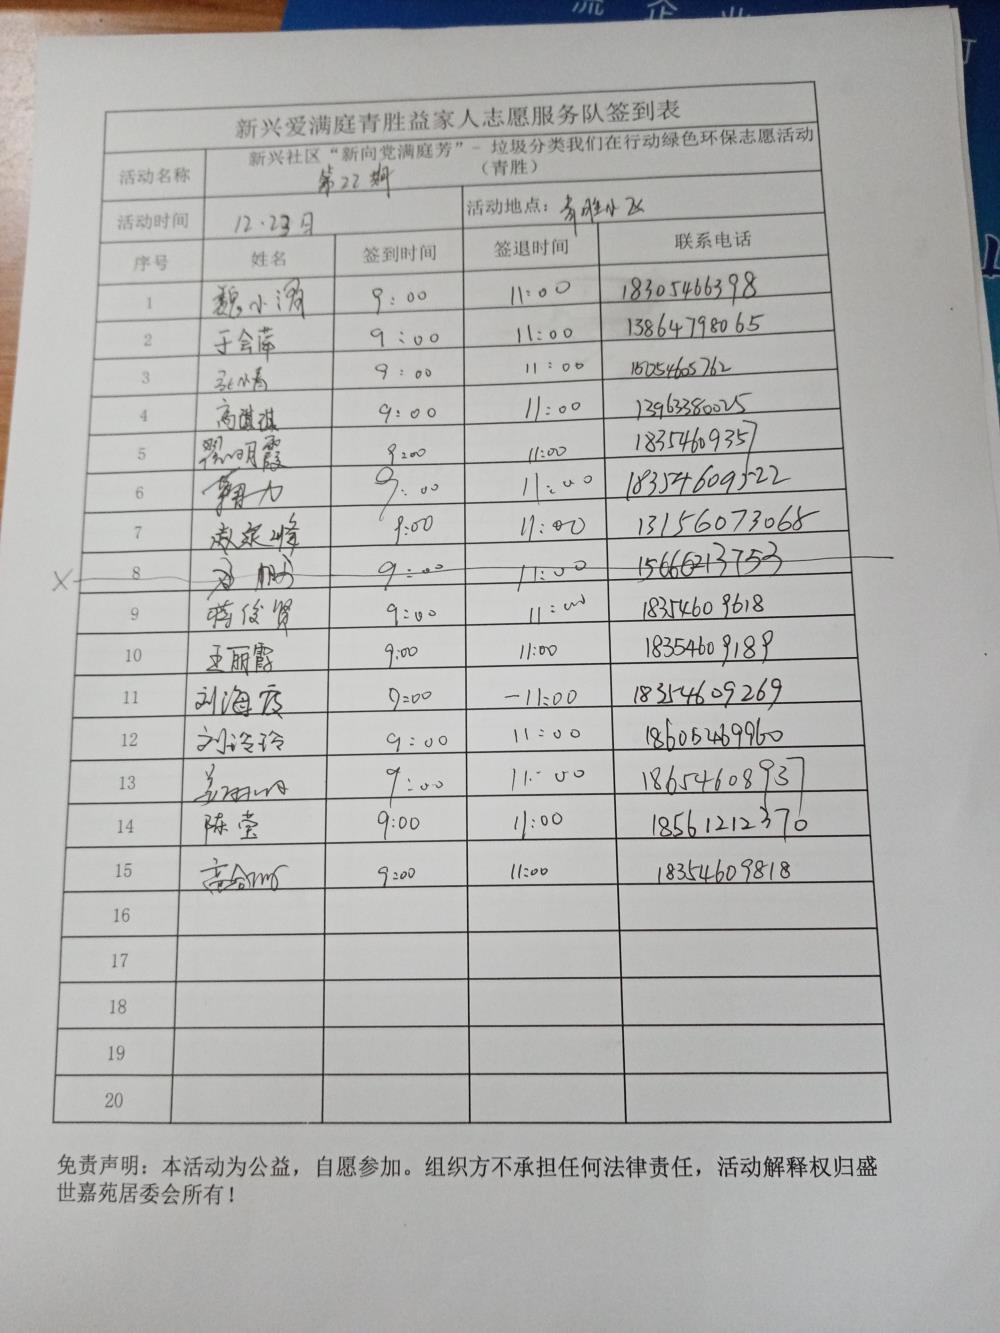 流 企 业
新兴爱满庭青胜益家人志愿服务队签到表
活动名称 新兴社区“新向党满庭芳”- 垃圾分类我们在行动绿色环保志愿活动
第22期 （青胜）
活动时间 12.23日 活动地点：青胜小区
序号 姓名 签到时间 签退时间 联系电话
1 魏小 9:00 11:00 18305466398
2 于会萍 9:00 11:00 13864798065
3 9:00 11:00 15054605762
4 高琪琪 9:00 11:00 13963380025
5 翟明霞 9:00 11:00 18354609357
6 9:00 11:00 18354609522
7 9:00 11:00 13156073068
X 8 9:00 11:00 15666213753
9 蒋俊贤 9:00 11:00 18354609618
10 王丽霞 9:00 11:00 18354609189
11 刘海霞 9:00 -11:00 18354609269
12 刘玲玲 9:00 11:00 18605469960
13 9:00 11:00 18654608937
14 陈莹 9:00 11:00 18561212370
15 9:00 11:00 18354609818
16
17
18
19
20
免责声明：本活动为公益，自愿参加。组织方不承担任何法律责任，活动解释权归盛
世嘉苑居委会所有！